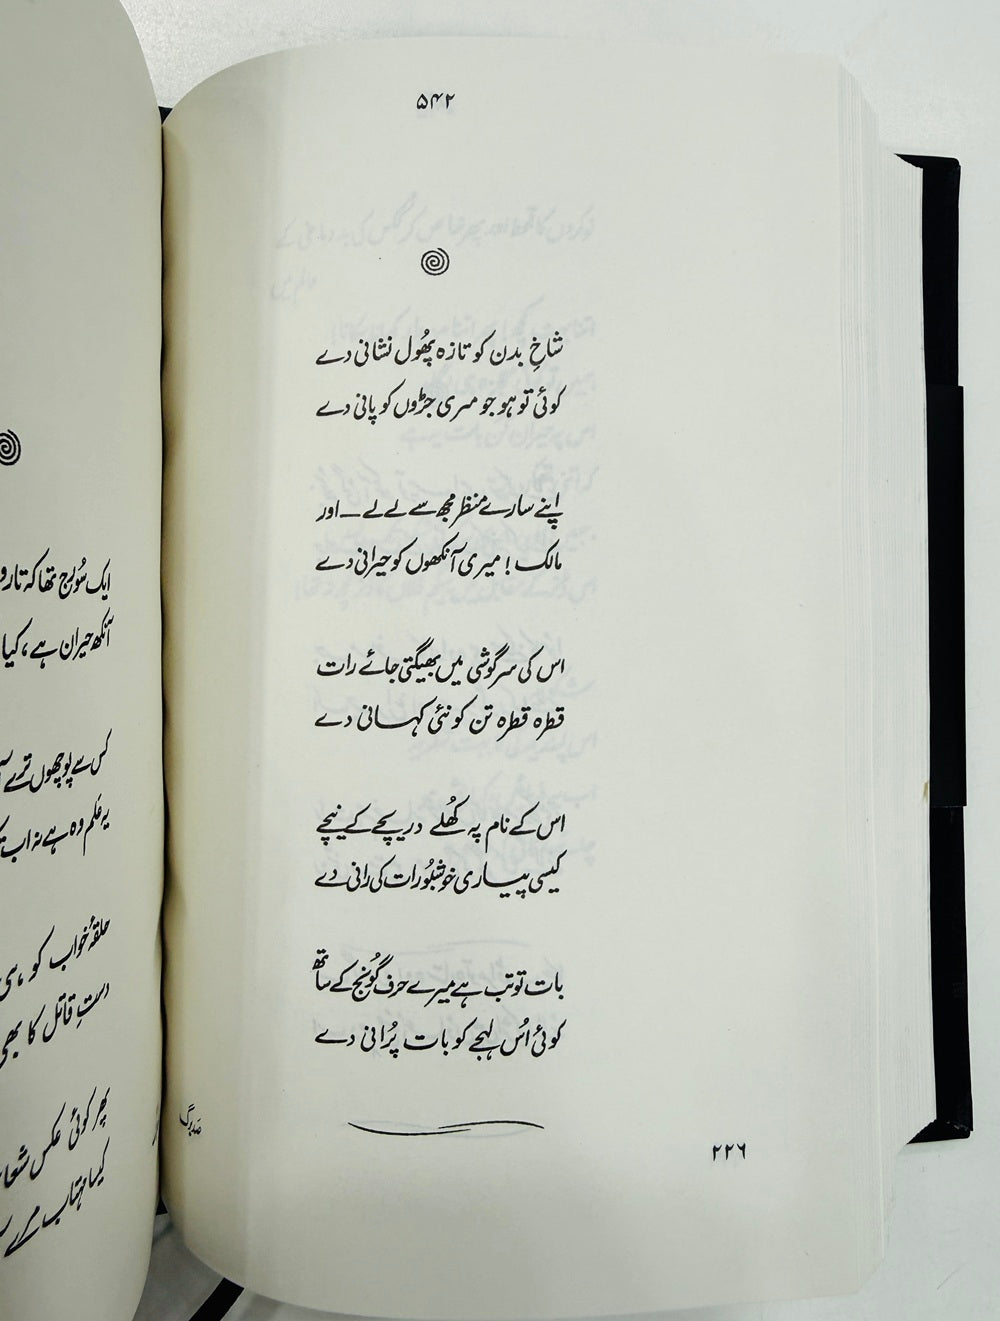 ۵۴۲
شاخِ بدن کو تازہ پھُول نشانی دے
کوئی تو ہو جو مری جڑوں کو پانی دے
اپنے سارے منظر مجھ سے لے لے ــ اور
مالک ! میری آنکھوں کو حیرانی دے
اس کی سرگوشی میں بھیگتی جائے رات
قطرہ قطرہ تن کو نئی کہانی دے
اس کے نام پہ کھُلے دریچے کے نیچے
کیسی پیاری خوشبُو رات کی رانی دے
بات تو تب ہے میرے حرف گُونج کے ساتھ
کوئی اُس لہجے کو بات پُرانی دے
صد برگ
۲۲۶
ایک سُورج تھا کہ
آنکھ حیران ہے ، کیا
کس سے پوچھوں ترے
یہ عَلم وہ ہے نہ اب
حلقۂ خواب کو
دستِ قاتل کا بھی
پھر کوئی عکس
کیسا مہتاب مرے